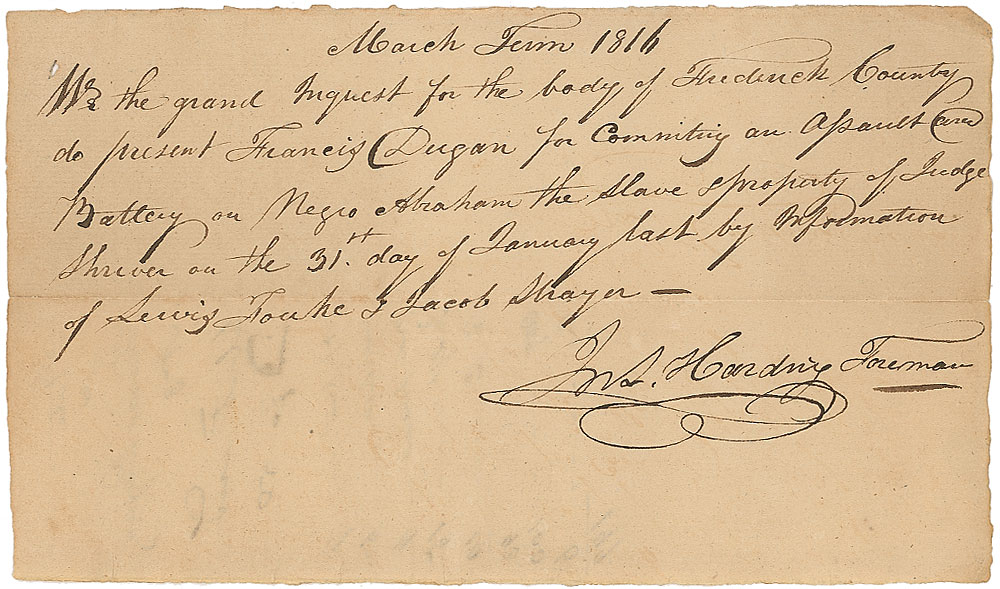 March Term 1816
We the grand Inquest for the body of Frederick County
do present Francis Dugan for Commiting an Assault and
Battery on Negro Abraham the slave & property of Judge
Shriver on the 31.st day of January last by Information
of Lewis Fouke & Jacob Shayer —
Jno. Harding Foreman